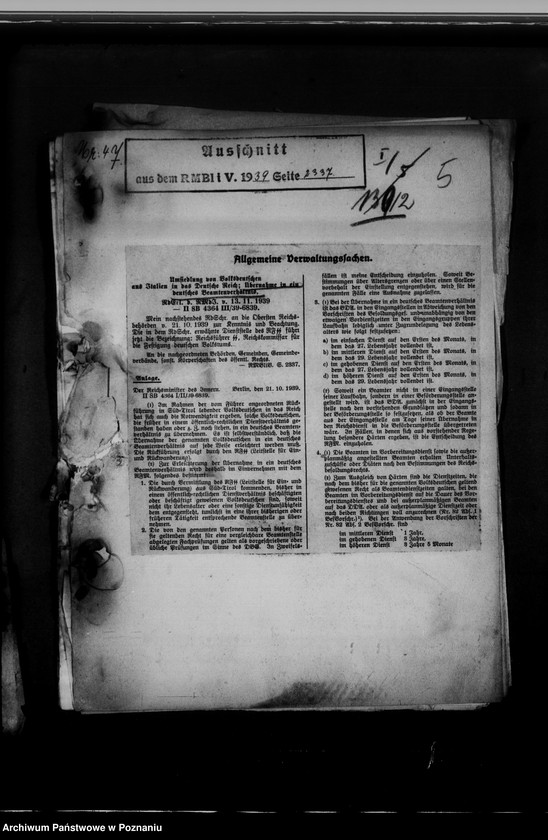 47
Ausschnitt
aus dem RMBliV. 1939 Seite 2337
I/
5
12
Allgemeine Verwaltungssachen.
Umsiedlung von Volksdeutschen
aus Italien in das Deutsche Reich; Übernahme in ein
deutsches Beamtenverhältnis.
RdErl. d. RMdJ. v. 13. 11. 1939
— II SB 4364 III/39-6839.
Mein nachstehendes RdSchr. an die Obersten Reichs-
behörden v. 21. 10. 1939 zur Kenntnis und Beachtung.
Die in dem RdSchr. erwähnte Dienststelle des RFSS führt
jetzt die Bezeichnung: Reichsführer SS, Reichskommissar für
die Festigung deutschen Volkstums.
An die nachgeordneten Behörden, Gemeinden, Gemeinde-
verbände, sonst. Körperschaften des öffentl. Rechts.
— RMBliV. S. 2337.
Anlage.
Der Reichsminister des Innern. Berlin, den 21. 10. 1939.
II SB 4364 I/II/39-6839.
(1) Im Rahmen der vom Führer angeordneten Rückfüh-
rung in Süd-Tirol lebender Volksdeutschen in das Reich
hat sich auch die Notwendigkeit ergeben, solche Volksdeutschen,
die früher in einem öffentlich-rechtlichen Dienstverhältnis ge-
standen haben oder z. Z. noch stehen, in das deutsche Beamten-
verhältnis zu übernehmen. Es ist selbstverständlich, daß die
Übernahme der genannten Volksdeutschen in ein deutsches
Beamtenverhältnis auf jede Weise erleichtert werden muß.
Die Rückführung erfolgt durch den RFSS (Leitstelle für Ein-
und Rückwanderung).
(2) Zur Erleichterung der Übernahme in ein deutsches
Beamtenverhältnis wird deshalb im Einvernehmen mit dem
RFM. folgendes bestimmt:
1. Die durch Vermittlung des RFSS (Leitstelle für Ein- und
Rückwanderung) aus Süd-Tirol kommenden, bisher in
einem öffentlich-rechtlichen Dienstverhältnis beschäftigten
oder beschäftigt gewesenen Volksdeutschen sind, soweit
nicht ihr Lebensalter oder eine sonstige Dienstunfähigkeit
dem entgegensteht, tunlichst in eine ihrer bisherigen oder
früheren Tätigkeit entsprechende Beamtenstelle zu über-
nehmen.
2. Die von den genannten Personen nach dem bisher für
sie geltenden Recht für eine vergleichbare Beamtenstelle
abgelegten Fachprüfungen gelten als vorgeschriebene oder
übliche Prüfungen im Sinne des DBG. In Zweifels-
fällen ist meine Entscheidung einzuholen. Soweit Be-
stimmungen über Altersgrenzen oder über einen Stellen-
vorbehalt der Einstellung entgegenstehen, wird für die
genannten Fälle eine Ausnahme zugelassen.
3. (1) Bei der Übernahme in ein deutsches Beamtenverhältnis
ist das BDA. in den Eingangsstellen in Abweichung von den
Vorschriften des Besoldungsges. unabhängig von den
etwaigen Vordienstzeiten in den Eingangsgruppen ihrer
Laufbahn lediglich unter Zugrundelegung des Lebens-
alters wie folgt festzusetzen:
a) im einfachen Dienst auf den Ersten des Monats, in
dem das 27. Lebensjahr vollendet ist,
b) im mittleren Dienst auf den Ersten des Monats, in
dem das 29. Lebensjahr vollendet ist,
c) im gehobenen Dienst auf den Ersten des Monats, in
dem das 27. Lebensjahr vollendet ist,
d) im höheren Dienst auf den Ersten des Monats, in
dem das 29. Lebensjahr vollendet ist.
(2) Soweit ein Beamter nicht in einer Eingangsstelle
seiner Laufbahn, sondern in einer Beförderungsstelle an-
gestellt wird, ist das BDA. zunächst in der Eingangs-
stelle nach den vorstehenden Grundsätzen und sodann in
der Beförderungsstelle so festzusetzen, als ob der Beamte
aus der Eingangsstelle am Tage seiner Übernahme in
den Reichsdienst in die Beförderungsstelle übergetreten
wäre. In Fällen, in denen sich aus vorstehender Rege-
lung besondere Härten ergeben, ist die Entscheidung des
RFM. einzuholen.
4. (1) Die Beamten im Vorbereitungsdienst sowie die außer-
planmäßig angestellten Beamten erhalten Unterhalts-
zuschüsse oder Diäten nach den Bestimmungen des Reichs-
besoldungsrechts.
(2) Zum Ausgleich von Härten sind die Dienstzeiten, die
nach dem bisher für die genannten Volksdeutschen gelten-
den Recht als Beamtendienstzeiten galten, bei den
Beamten im Vorbereitungsdienst auf die Dauer des Vor-
bereitungsdienstes und bei außerplanmäßigen Beamten
auf das ADA. oder als außerplanmäßige Dienstzeit oder
nach beiden Richtungen voll anzurechnen
Bei der Anwendung der Vorschriften der
Nr. 62 Abs. 2 BesVorschr. sind
im mittleren Dienst 1 Jahr,
im gehobenen Dienst 3 Jahre,
im höheren Dienst 3 Jahre 6 Monate
Archiwum Państwowe w Poznaniu